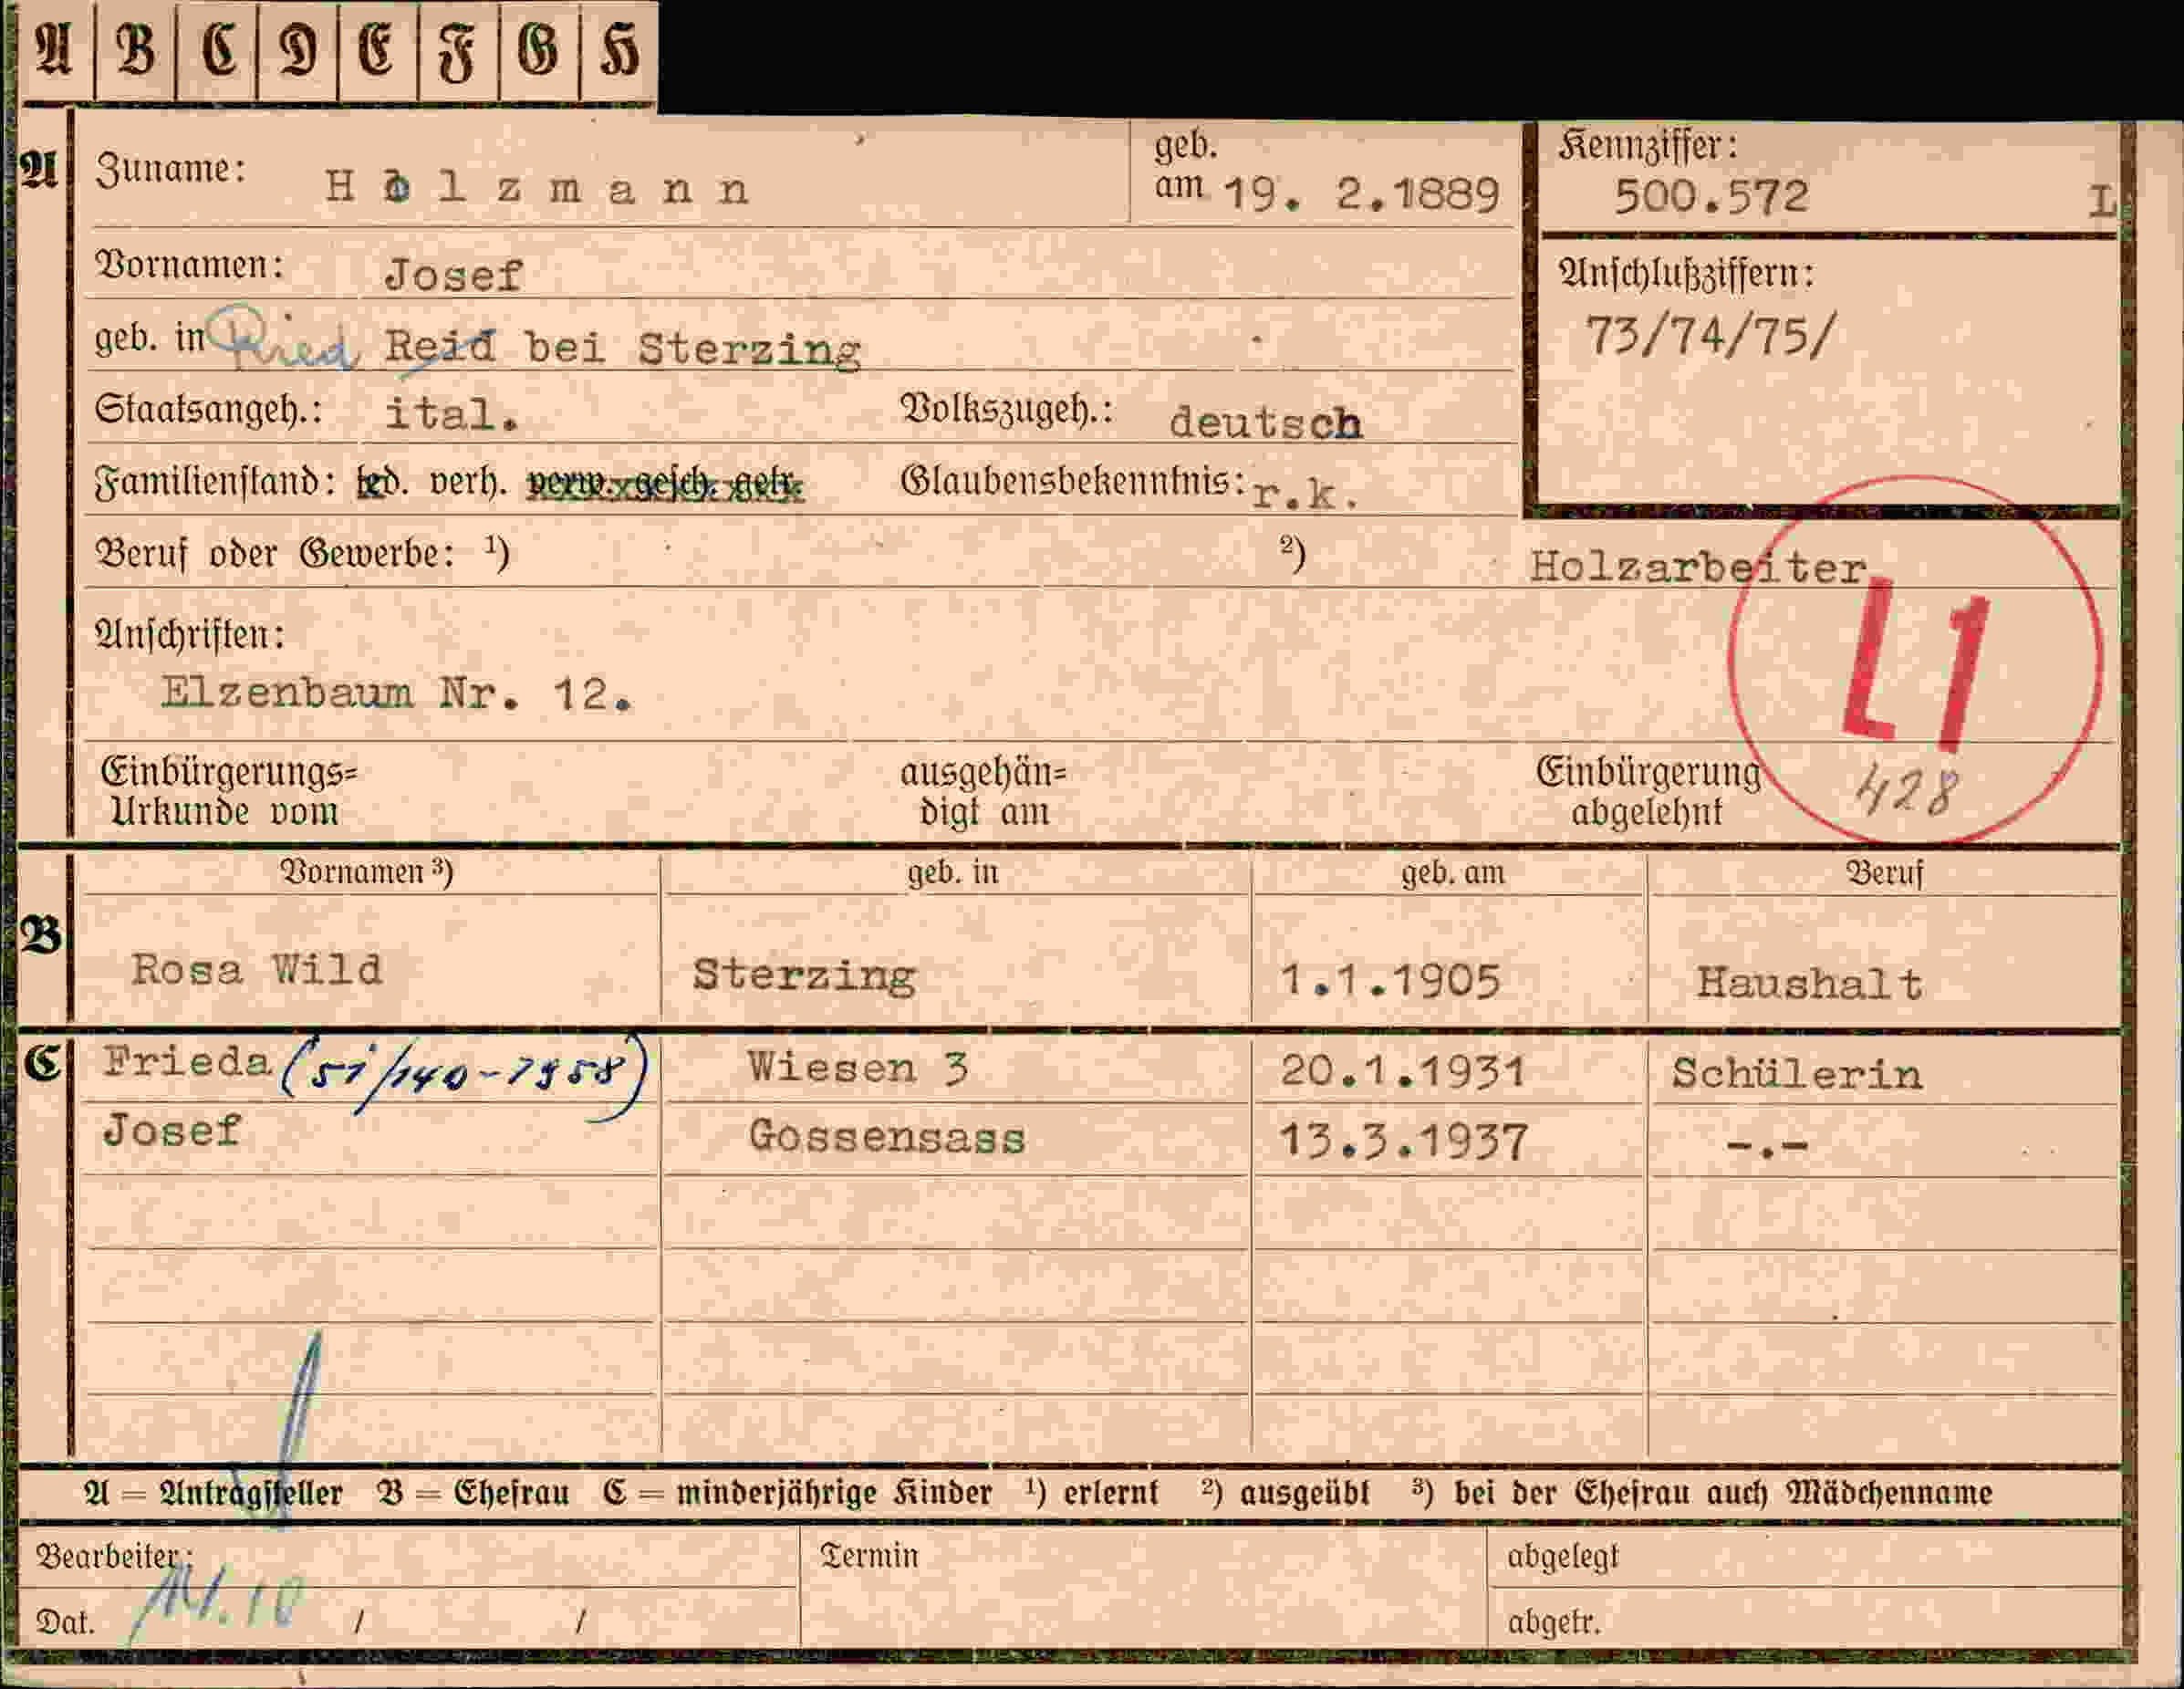 A B C D E F G H
A Zuname: Holzmann geb. am 19. 2.1889 Kennziffer: 500.572 L
Vornamen: Josef Anschlußziffern: 73/74/75/
geb. in Ried Reid bei Sterzing
Staatsangeh.: ital. Volkszugeh.: deutsch
Familienstand: led. verh. verw. gesch. getr. Glaubensbekenntnis: r.k.
Beruf oder Gewerbe: ¹) ²) Holzarbeiter
Anschriften:
L1
Elzenbaum Nr. 12.
Einbürgerungs= ausgehän= Einbürgerung 428
Urkunde vom digt am abgelehnt
Vornamen ³) geb. in geb. am Beruf
B Rosa Wild Sterzing 1.1.1905 Haushalt
C Frieda (51/140-1958) Wiesen 3 20.1.1931 Schülerin
Josef Gossensass 13.3.1937 -.-
A = Antragsteller B = Ehefrau C = minderjährige Kinder ¹) erlernt ²) ausgeübt ³) bei der Ehefrau auch Mädchenname
Bearbeiter: Termin abgelegt
Dat. / / abgetr.